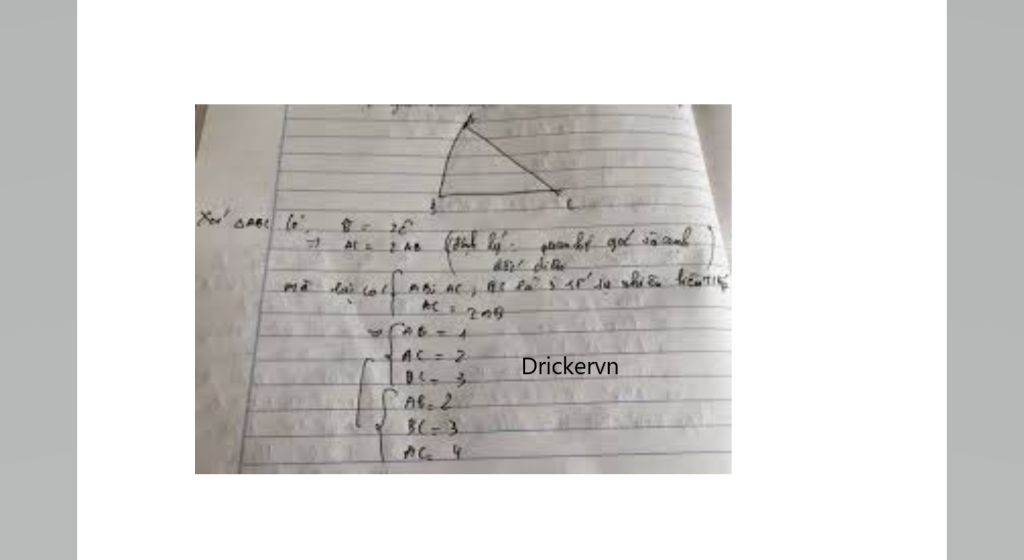 A
B C
Xét △ABC có: B̂ = 2Ĉ
=> AC = 2AB (định lý quan hệ góc và cạnh
đối diện)
mà lại có { AB, AC, BC là 3 số tự nhiên liên tiếp
AC = 2AB
=> { AB = 1
AC = 2
BC = 3
Drickervn
{ AB = 2
BC = 3
AC = 4